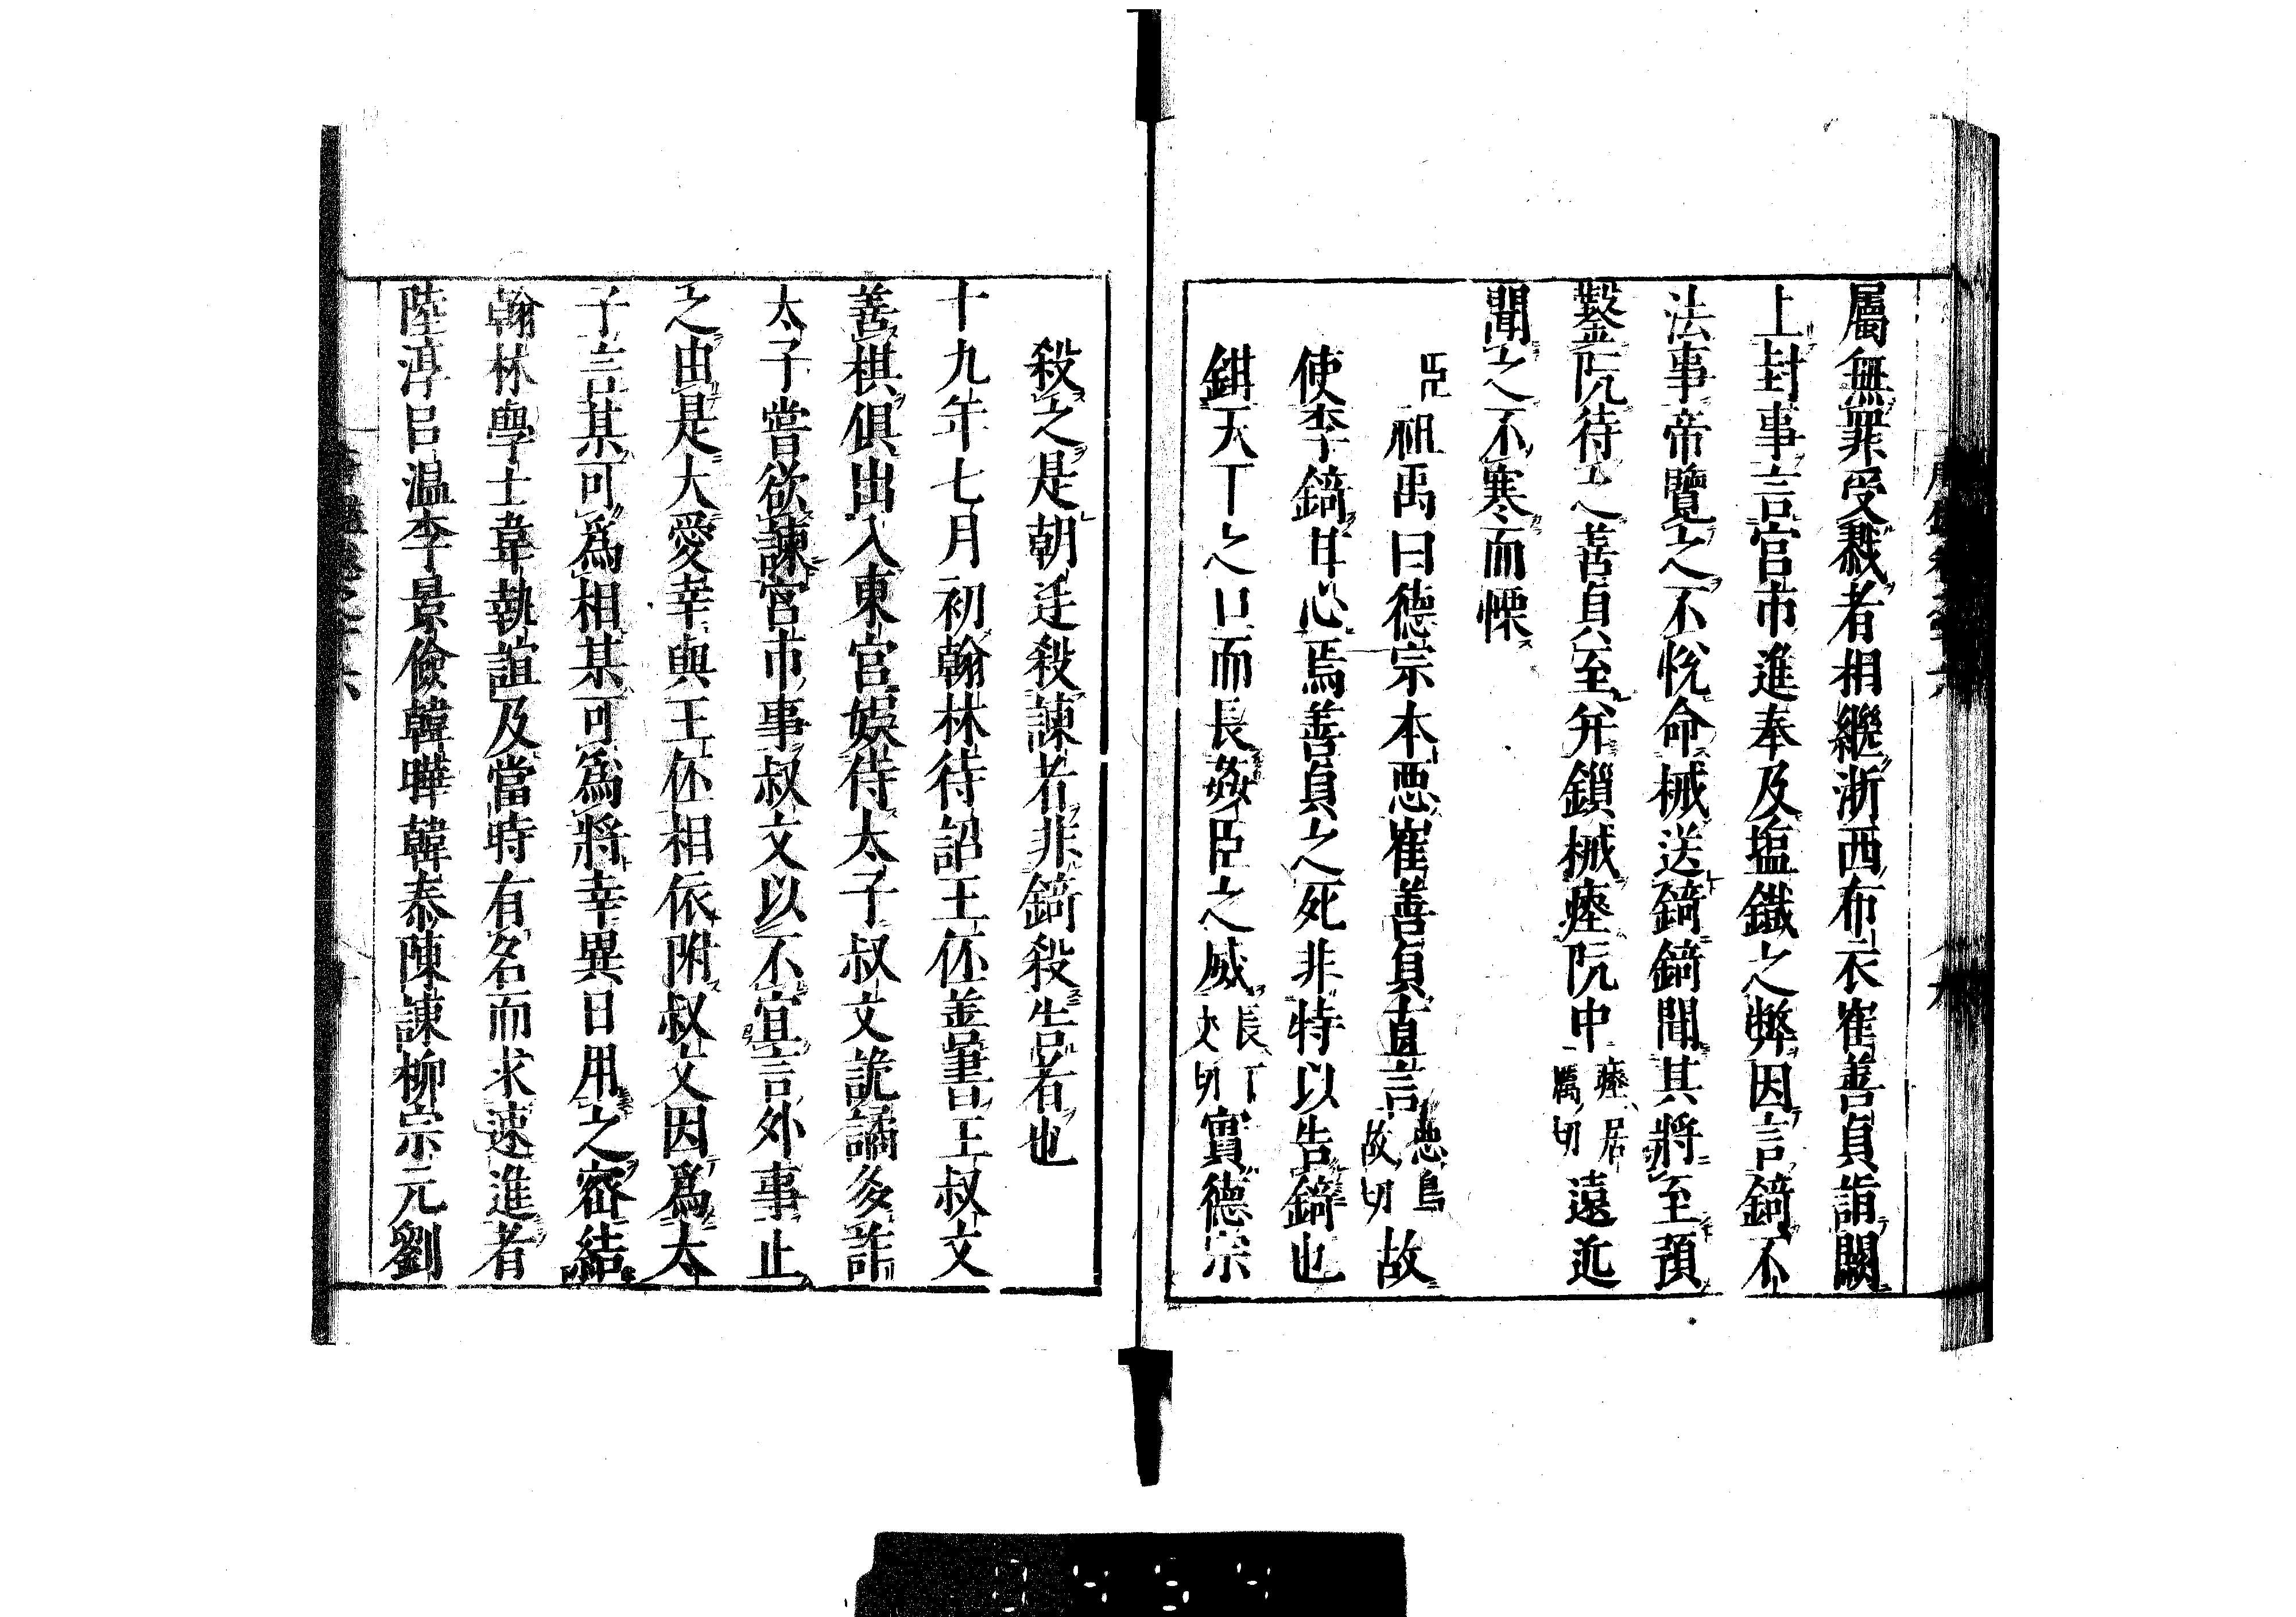 屬無罪受戮者相繼浙西布衣崔善貞詣闕
上封事言宮市進奉及塩鐵之弊因言錡不
法事帝覽之不悅命械送錡錡聞其將至預
鑿阬待之善貞至并鎖械瘞阬中瘞居厲切遠近
聞之不寒而慄
臣祖禹曰德宗本惡崔善貞直言惡烏故切故
使李錡甘心焉善貞之死非特以告錡也
鉗天下之口而長姦臣之威長丁丈切實德宗
殺之是朝廷殺諫者非錡殺告者也
十九年七月初翰林待詔王伾善書王叔文
善棋俱出入東宮娛侍太子叔文詭譎多詐
太子嘗欲諫宮市事叔文以不宜言外事止
之由是大愛幸與王伾相依附叔文因為太
子言某可為相某可為將幸異日用之密結
翰林學士韋執誼及當時有名而求速進者
陸淳呂温李景儉韓曄韓泰陳諫柳宗元劉